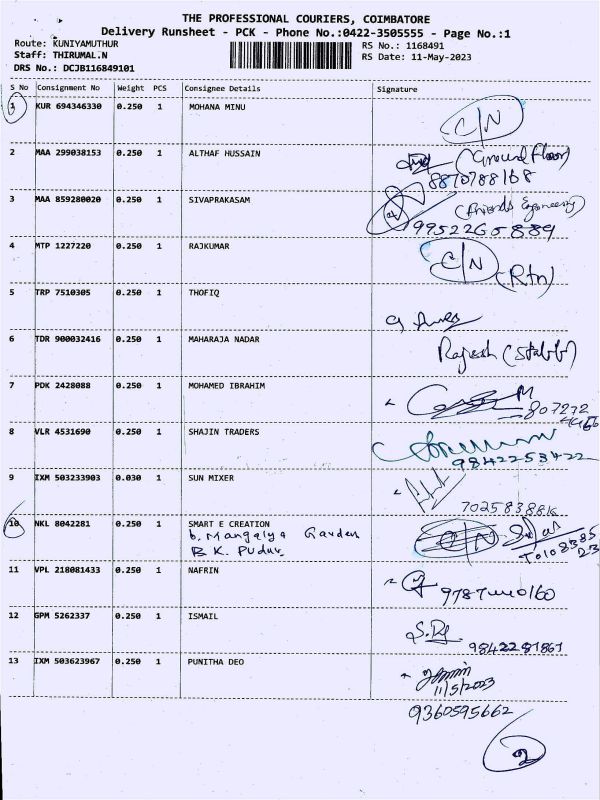 THE PROFESSIONAL COURIERS, COIMBATORE
Delivery Runsheet - PCK - Phone No.:0422-3505555 - Page No.:1
Route: KUNIYAMUTHUR RS No.: 1168491
Staff: THIRUMAL.N RS Date: 11-May-2023
DRS No.: DCJB116849101
S No Consignment No Weight PCS Consignee Details Signature
1 KUR 694346330 0.250 1 MOHANA MINU
C/N
2 MAA 299038153 0.250 1 ALTHAF HUSSAIN (Ground Floor)
8870788168
3 MAA 859280020 0.250 1 SIVAPRAKASAM (friends Engineering)
9952265889
4 MTP 1227220 0.250 1 RAJKUMAR C/N (Rtn)
5 TRP 7510305 0.250 1 THOFIQ
6 TDR 900032416 0.250 1 MAHARAJA NADAR Rajesh (Staff)
7 PDK 2428088 0.250 1 MOHAMED IBRAHIM
807272
8 VLR 4531690 0.250 1 SHAJIN TRADERS
9842253422
9 IXM 503233903 0.030 1 SUN MIXER
7025838816
10 NKL 8042281 0.250 1 SMART E CREATION C/N
6. Mangalya Garden
B K. Pudur
11 VPL 218081433 0.250 1 NAFRIN
12 GPM 5262337 0.250 1 ISMAIL
S.
9842281861
13 IXM 503623967 0.250 1 PUNITHA DEO
11/5/2023
9360595662
2